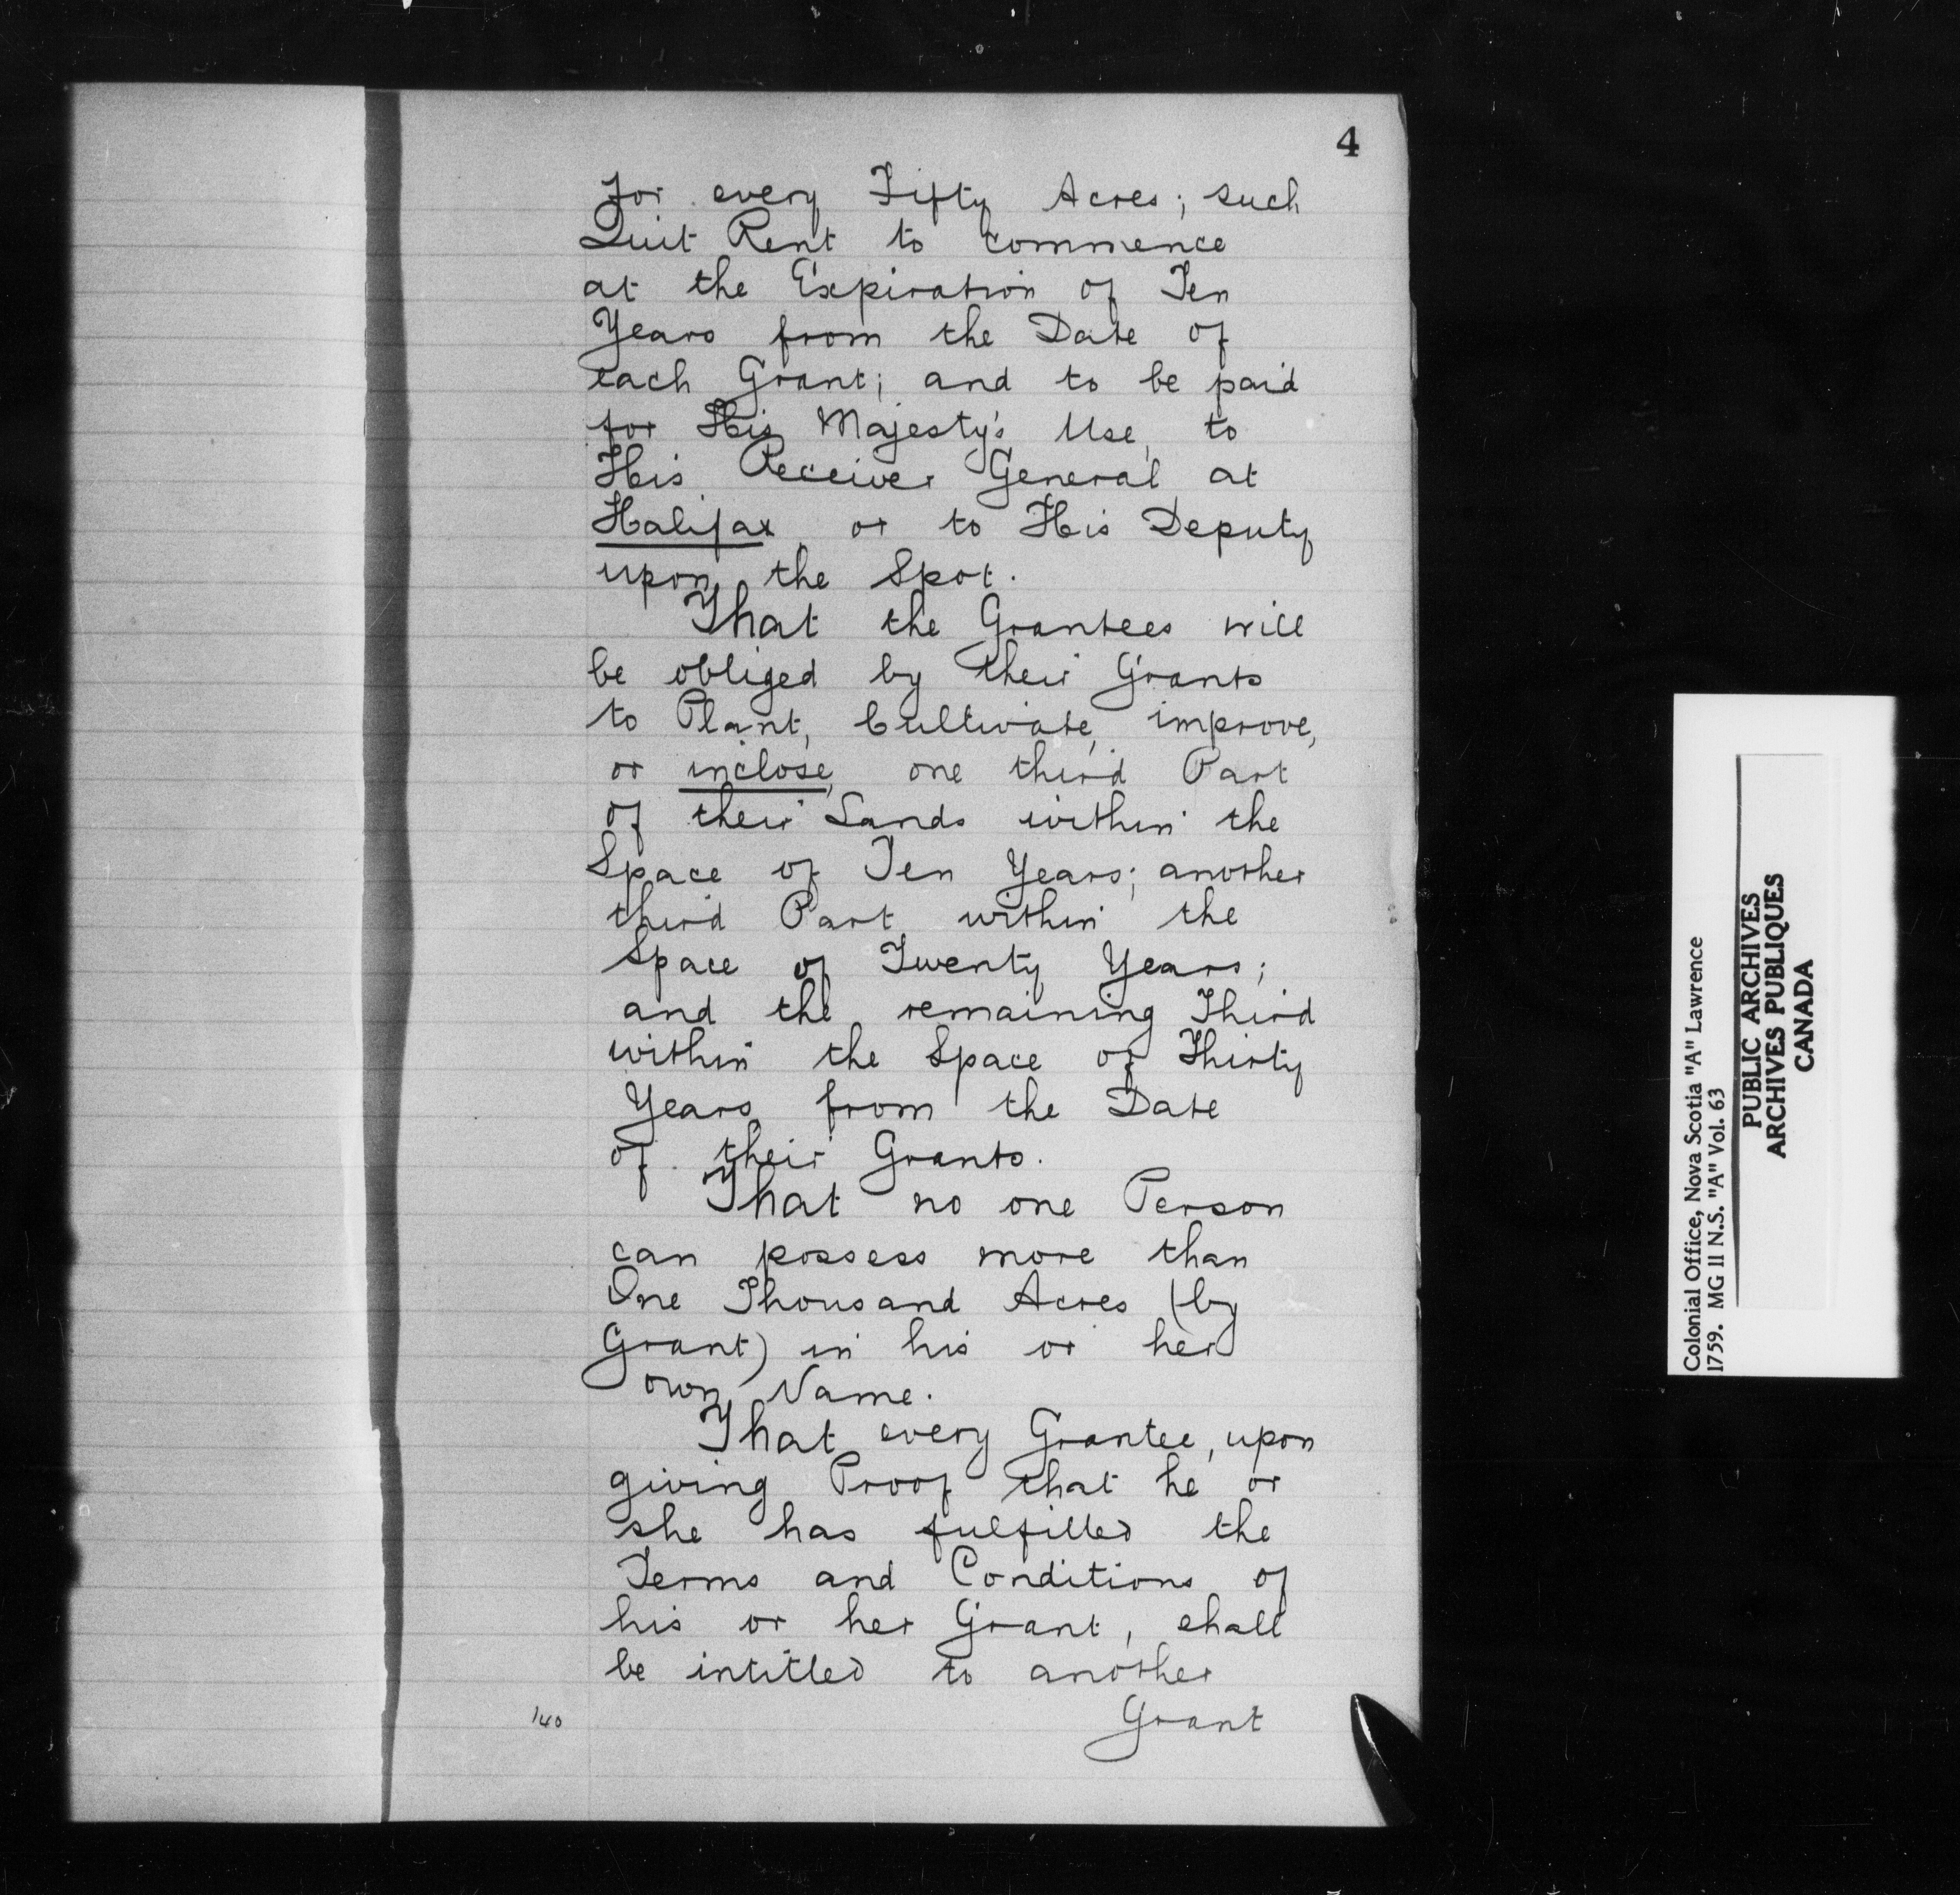 4
for every Fifty Acres; such
Quit Rent to commence
at the Expiration of Ten
Years from the Date of
each Grant; and to be paid
for His Majesty's Use, to
His Receiver General at
Halifax, or to His Deputy
upon the Spot.
That the Grantees will
be obliged by their Grants
to Plant, Cultivate, improve,
or inclose, one third Part
of their Lands within the
Space of Ten Years; another
third Part within the
Space of Twenty Years;
and the remaining Third
within the Space of Thirty
Years from the Date
of their Grants.
That no one Person
can possess more than
One Thousand Acres (by
Grant) in his or her
own Name.
That every Grantee, upon
giving Proof that he or
she has fulfilled the
Terms and Conditions of
his or her Grant, shall
be intitled to another
Grant
140
Colonial Office, Nova Scotia "A" Lawrence
1759. MG 11 N.S. "A" Vol. 63
PUBLIC ARCHIVES
ARCHIVES PUBLIQUES
CANADA